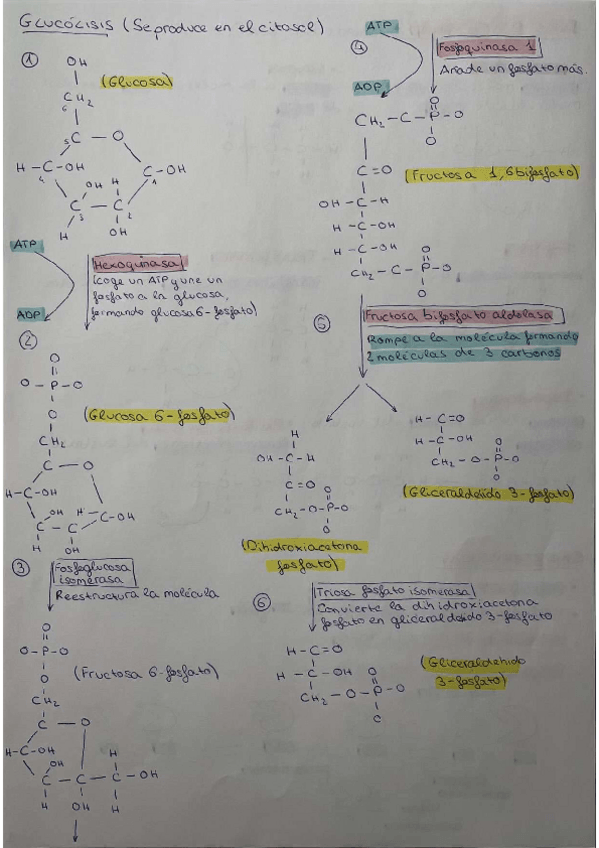 GLUCÓLISIS (Se produce en el citosol)
①
OH
CH₂
6
(Glucosa)
5
C - O
H - C - OH
C - OH
4
1
OH H
C - C
3 2
H OH
ATP
ADP
Hexoquinasa
(coge un ATP y une un
fosfato a la glucosa,
formando glucosa 6-fosfato)
②
O
O - P - O
O
(Glucosa 6-fosfato)
CH₂
C - O
H - C - OH
OH H
C - OH
C - C
H OH
③
Fosfoglucosa
isomerasa
Reestructura la molécula
O
O - P - O
O
(Fructosa 6-fosfato)
CH₂
C - O
H - C - OH
H
OH
C - C - C - OH
H OH H
④
ATP
ADP
Fosfoquinasa 1
Añade un fosfato más.
O
CH₂ - C - P - O
O
C = O
(Fructosa 1,6 bifosfato)
OH - C - H
H - C - OH
H - C - OH
O
CH₂ - C - P - O
O
⑤
Fructosa bifosfato aldolasa
Rompe a la molécula formando
2 moléculas de 3 carbonos
H
OH - C - H
C = O
O
CH₂ - O - P - O
O
(Dihidroxiacetona
fosfato)
H - C = O
H - C - OH
O
CH₂ - O - P - O
O
(Gliceraldehido 3-fosfato)
⑥
Triosa fosfato isomerasa
Convierte la dihidroxiacetona
fosfato en gliceraldehido 3-fosfato
H - C = O
H - C - OH
O
CH₂ - O - P - O
O
(Gliceraldehido
3-fosfato)